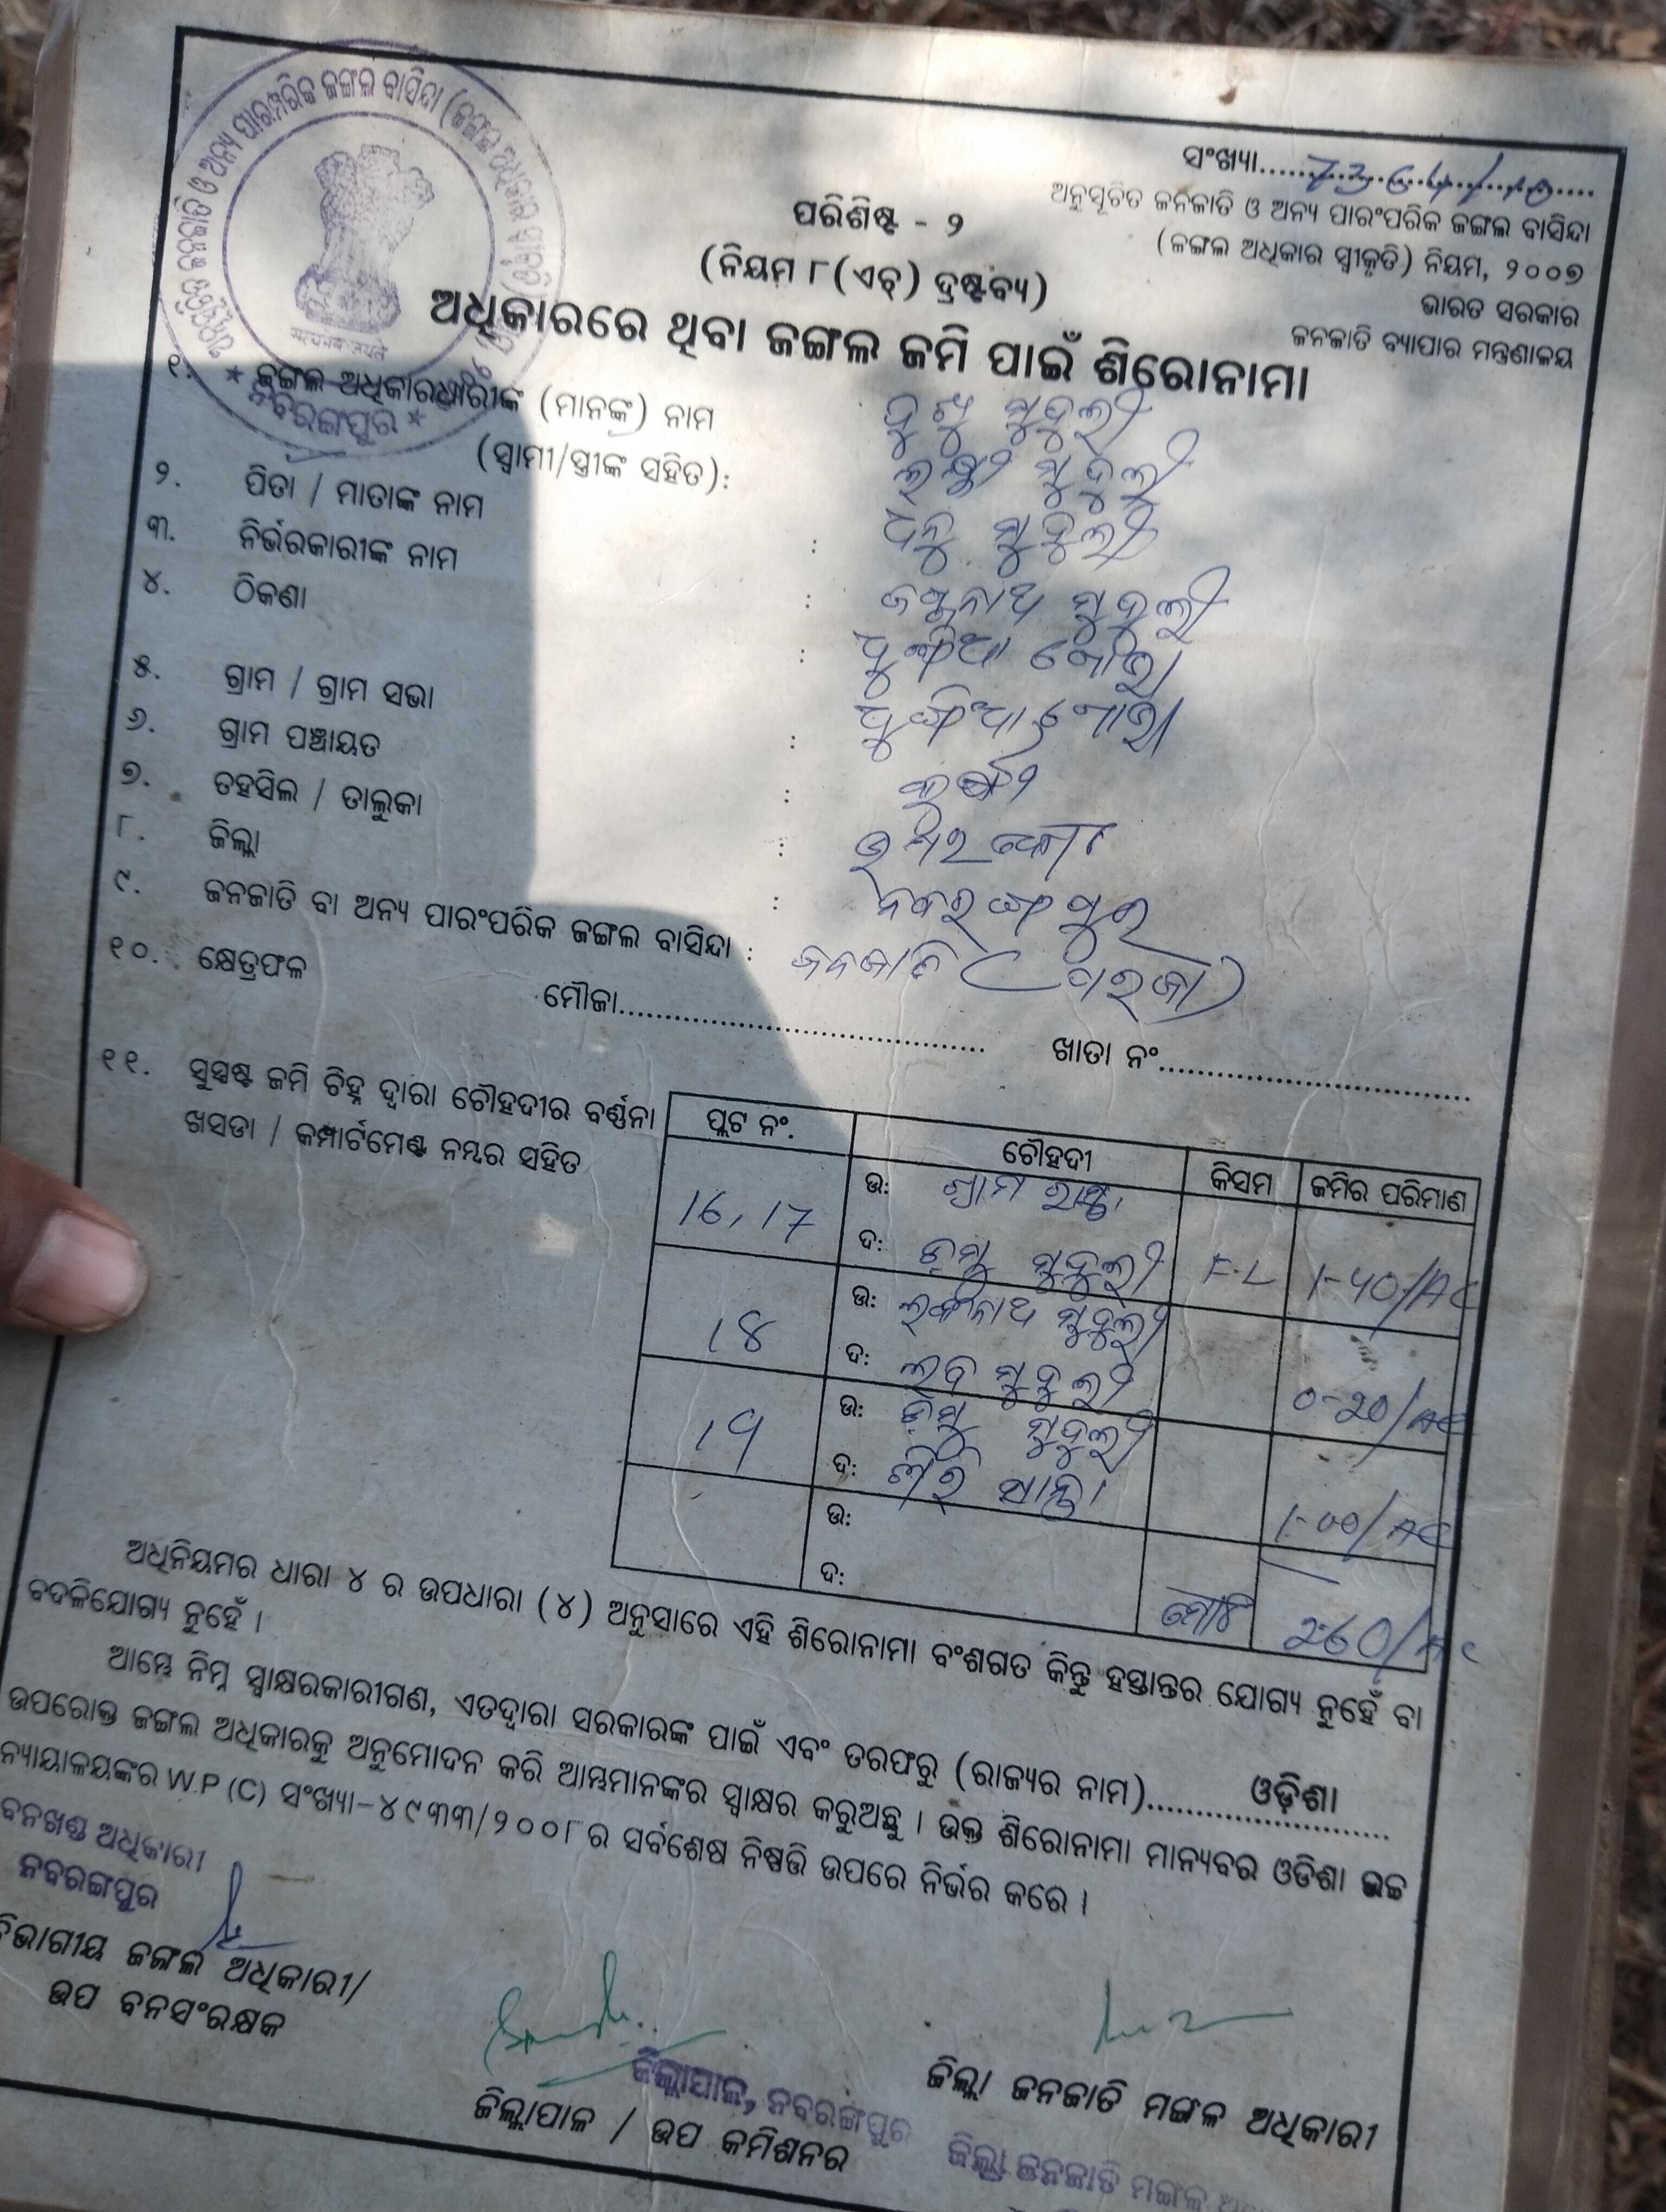 ସଂଖ୍ୟା..... 7364/10
ଅନୁସୂଚିତ ଜନଜାତି ଓ ଅନ୍ୟ ପାରଂପରିକ ଜଙ୍ଗଲ ବାସିନ୍ଦା
(ଜଙ୍ଗଲ ଅଧିକାର ସ୍ୱୀକୃତି) ନିୟମ, ୨୦୦୭
ଭାରତ ସରକାର
ଜନଜାତି ବ୍ୟାପାର ମନ୍ତ୍ରଣାଳୟ
ପରିଶିଷ୍ଟ - ୨
(ନିୟମ ୮(ଏଚ୍) ଦ୍ରଷ୍ଟବ୍ୟ)
ଅଧିକାରରେ ଥିବା ଜଙ୍ଗଲ ଜମି ପାଇଁ ଶିରୋନାମା
ନବରଙ୍ଗପୁର
୧. ଜଙ୍ଗଲ ଅଧିକାରଧାରୀଙ୍କ (ମାନଙ୍କ) ନାମ ମୁଦୁଲୀ
(ସ୍ୱାମୀ/ସ୍ତ୍ରୀଙ୍କ ସହିତ): ମୁଦୁଲୀ
୨. ପିତା / ମାତାଙ୍କ ନାମ : ଧନୁ ମୁଦୁଲୀ
୩. ନିର୍ଭରକାରୀଙ୍କ ନାମ : ମୁଦୁଲୀ
୪. ଠିକଣା :
୫. ଗ୍ରାମ / ଗ୍ରାମ ସଭା :
୬. ଗ୍ରାମ ପଞ୍ଚାୟତ :
୭. ତହସିଲ / ତାଲୁକା :
୮. ଜିଲ୍ଲା : ନବରଙ୍ଗପୁର
୯. ଜନଜାତି ବା ଅନ୍ୟ ପାରଂପରିକ ଜଙ୍ଗଲ ବାସିନ୍ଦା : ଜନଜାତି (ପରଜା)
୧୦. କ୍ଷେତ୍ରଫଳ
ମୌଜା..... ଖାତା ନଂ.....
୧୧. ସୁସ୍ପଷ୍ଟ ଜମି ଚିହ୍ନ ଦ୍ୱାରା ଚୌହଦୀର ବର୍ଣ୍ଣନା
ଖସଡା / କମ୍ପାର୍ଟମେଣ୍ଟ ନମ୍ବର ସହିତ
ପ୍ଲଟ ନଂ. ଚୌହଦୀ କିସମ ଜମିର ପରିମାଣ
16, 17 ଉ: ଗ୍ରାମ ରାସ୍ତା F.L 1-40/AC
ଦ: ଡମୁ ମୁଦୁଲୀ
18 ଉ: ମୁଦୁଲୀ 0-20/AC
ଦ: ଲବ ମୁଦୁଲୀ
19 ଉ: ଡମୁ ମୁଦୁଲୀ 1-00/AC
ଦ: ସାନ୍ତା
ଉ:
ଦ: ମୋଟ 2-60/AC
ଅଧିନିୟମର ଧାରା ୪ ର ଉପଧାରା (୪) ଅନୁସାରେ ଏହି ଶିରୋନାମା ବଂଶଗତ କିନ୍ତୁ ହସ୍ତାନ୍ତର ଯୋଗ୍ୟ ନୁହେଁ ବା
ବଦଳିଯୋଗ୍ୟ ନୁହେଁ ।
ଆମ୍ଭେ ନିମ୍ନ ସ୍ୱାକ୍ଷରକାରୀଗଣ, ଏତଦ୍ୱାରା ସରକାରଙ୍କ ପାଇଁ ଏବଂ ତରଫରୁ (ରାଜ୍ୟର ନାମ)..... ଓଡ଼ିଶା
ଉପରୋକ୍ତ ଜଙ୍ଗଲ ଅଧିକାରକୁ ଅନୁମୋଦନ କରି ଆମ୍ଭମାନଙ୍କର ସ୍ୱାକ୍ଷର କରୁଅଛୁ । ଉକ୍ତ ଶିରୋନାମା ମାନ୍ୟବର ଓଡିଶା ଉଚ୍ଚ
ନ୍ୟାୟାଳୟଙ୍କର W.P (C) ସଂଖ୍ୟା-୪୯୩୩/୨୦୦୮ର ସର୍ବଶେଷ ନିଷ୍ପତ୍ତି ଉପରେ ନିର୍ଭର କରେ ।
ବନଖଣ୍ଡ ଅଧିକାରୀ
ନବରଙ୍ଗପୁର
ବିଭାଗୀୟ ଜଙ୍ଗଲ ଅଧିକାରୀ/
ଉପ ବନସଂରକ୍ଷକ
ଜିଲ୍ଲାପାଳ, ନବରଙ୍ଗପୁର
ଜିଲ୍ଲାପାଳ / ଉପ କମିଶନର
ଜିଲ୍ଲା ଜନଜାତି ମଙ୍ଗଳ ଅଧିକାରୀ
ଜିଲ୍ଲା ଜନଜାତି ମଙ୍ଗଳ